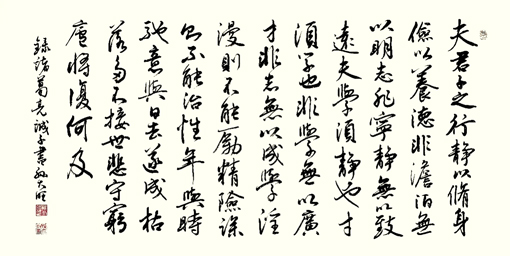 夫君子之行静以脩身
儉以養德非澹泊無
以明志非寧静無以致
遠夫學須静也才
須學也非學無以廣
才非志無以成學淫
漫則不能勵精險躁
則不能治性年與時
馳意與日去遂成枯
落多不接世悲守窮
廬將復何及
錄諸葛亮誡子書